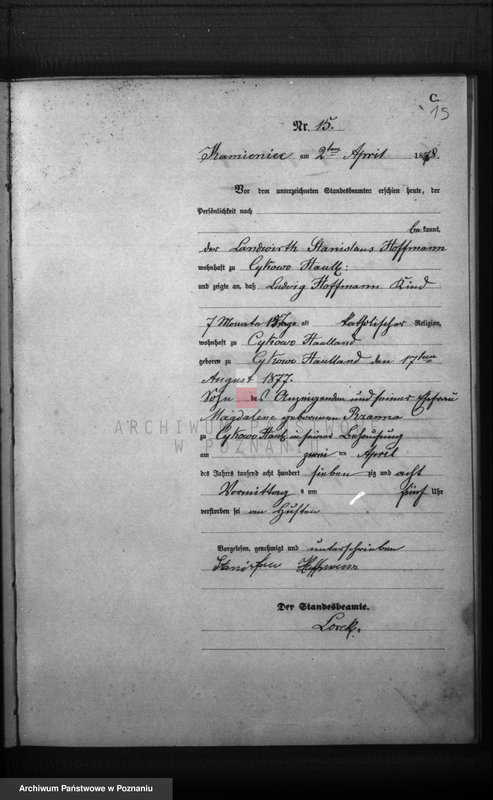 C.
15
Nr. 15.
Kamieniec am 2ten April 1878.
Vor dem unterzeichneten Standesbeamten erschien heute, der
Persönlichkeit nach
bekannt,
der Landwirth Stanislaus Hoffmann
wohnhaft zu Cykowo Haull:
und zeigte an, daß Ludwig Hoffmann Kind
7 Monate 15 Tage alt katholischer Religion,
wohnhaft zu Cykowo Haulland
geboren zu Cykowo Haulland den 17ten
August 1877.
Sohn des Anzeigenden und seiner Ehefrau
Magdalene geborenen Rzanna
zu Cykowo Haul. in seiner Behausung
am zwei ten April
des Jahres tausend acht hundert sieben zig und acht
Vormittags um fünf Uhr
verstorben sei an Husten
Vorgelesen, genehmigt und unterschrieben
Stanisław Hoffmann
Der Standesbeamte.
Lorek.
ARCHIWUM PAŃSTWOWE
W POZNANIU
Archiwum Państwowe w Poznaniu